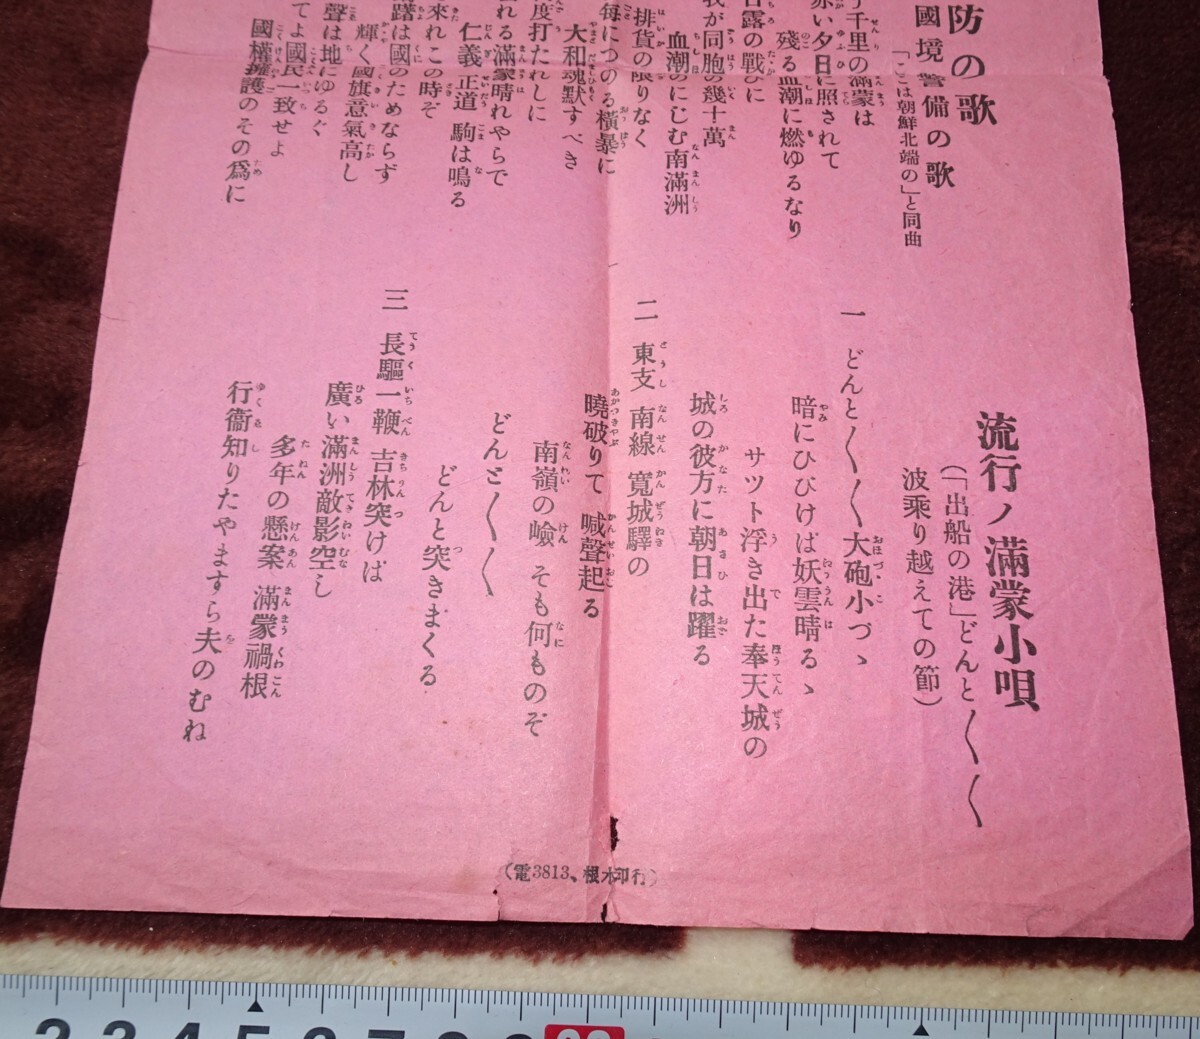 防の歌
國境警備の歌
「ここは朝鮮北端の」と同曲
千里の滿蒙は
赤い夕日に照されて
殘る血潮に燃ゆるなり
日露の戰ひに
我が同胞の幾十萬
血潮のにじむ南滿洲
排貨の限りなく
毎につのる橫暴に
大和魂默すべき
度打たれしに
仁義正道 駒は鳴る
れる滿蒙晴れやらで
來れこの時ぞ
躇は國のためならず
輝く國旗意氣高し
聲は地にゆるぐ
てよ國民一致せよ
國權擁護のその爲に
流行ノ滿蒙小唄
(「出船の港」どんと〱〱
波乘り越えての節)
一 どんと〱〱大砲小づゝ
暗にひびけば妖雲晴るゝ
サツト浮き出た奉天城の
城の彼方に朝日は躍る
二 東支 南線 寬城驛の
曉破りて 喊聲起る
南嶺の嶮 そも何ものぞ
どんと〱〱
どんと突きまくる
三 長驅一鞭 吉林突けば
廣い滿洲敵影空し
多年の懸案 滿蒙禍根
行衞知りたやますら夫のむね
(電3813、根木印行)